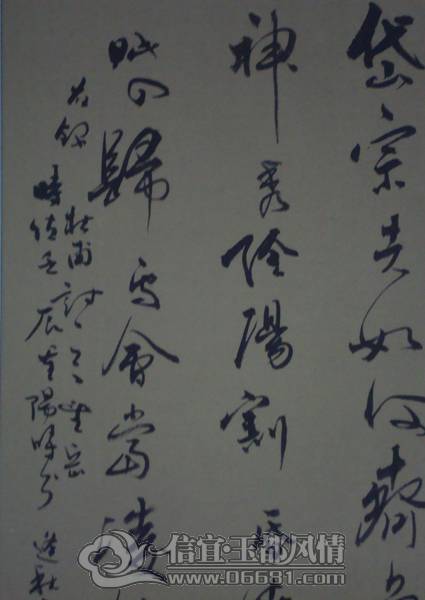 岱宗夫如何齊
神秀陰陽割昏
眦入歸鳥會當凌
右錄杜甫詩望岳
時值壬辰重陽時分
信宜·玉都风情
www.06681.com